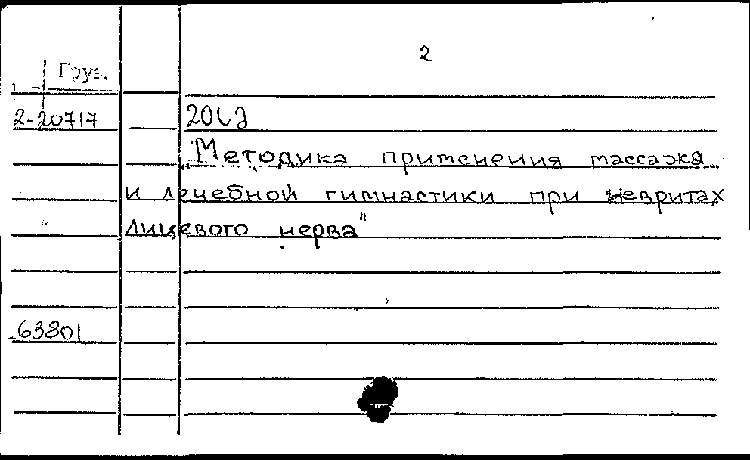 2
Груз.
2-20717
"Методика применения массажа
и лечебной гимнастики при невритах
лицевого нерва"
63801